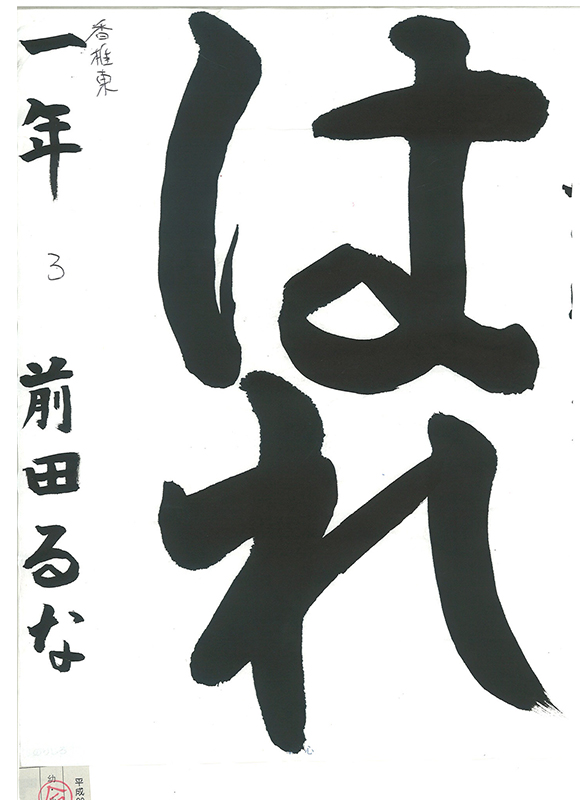 はれ
香椎東
一年 3 前田るな
平成
幼